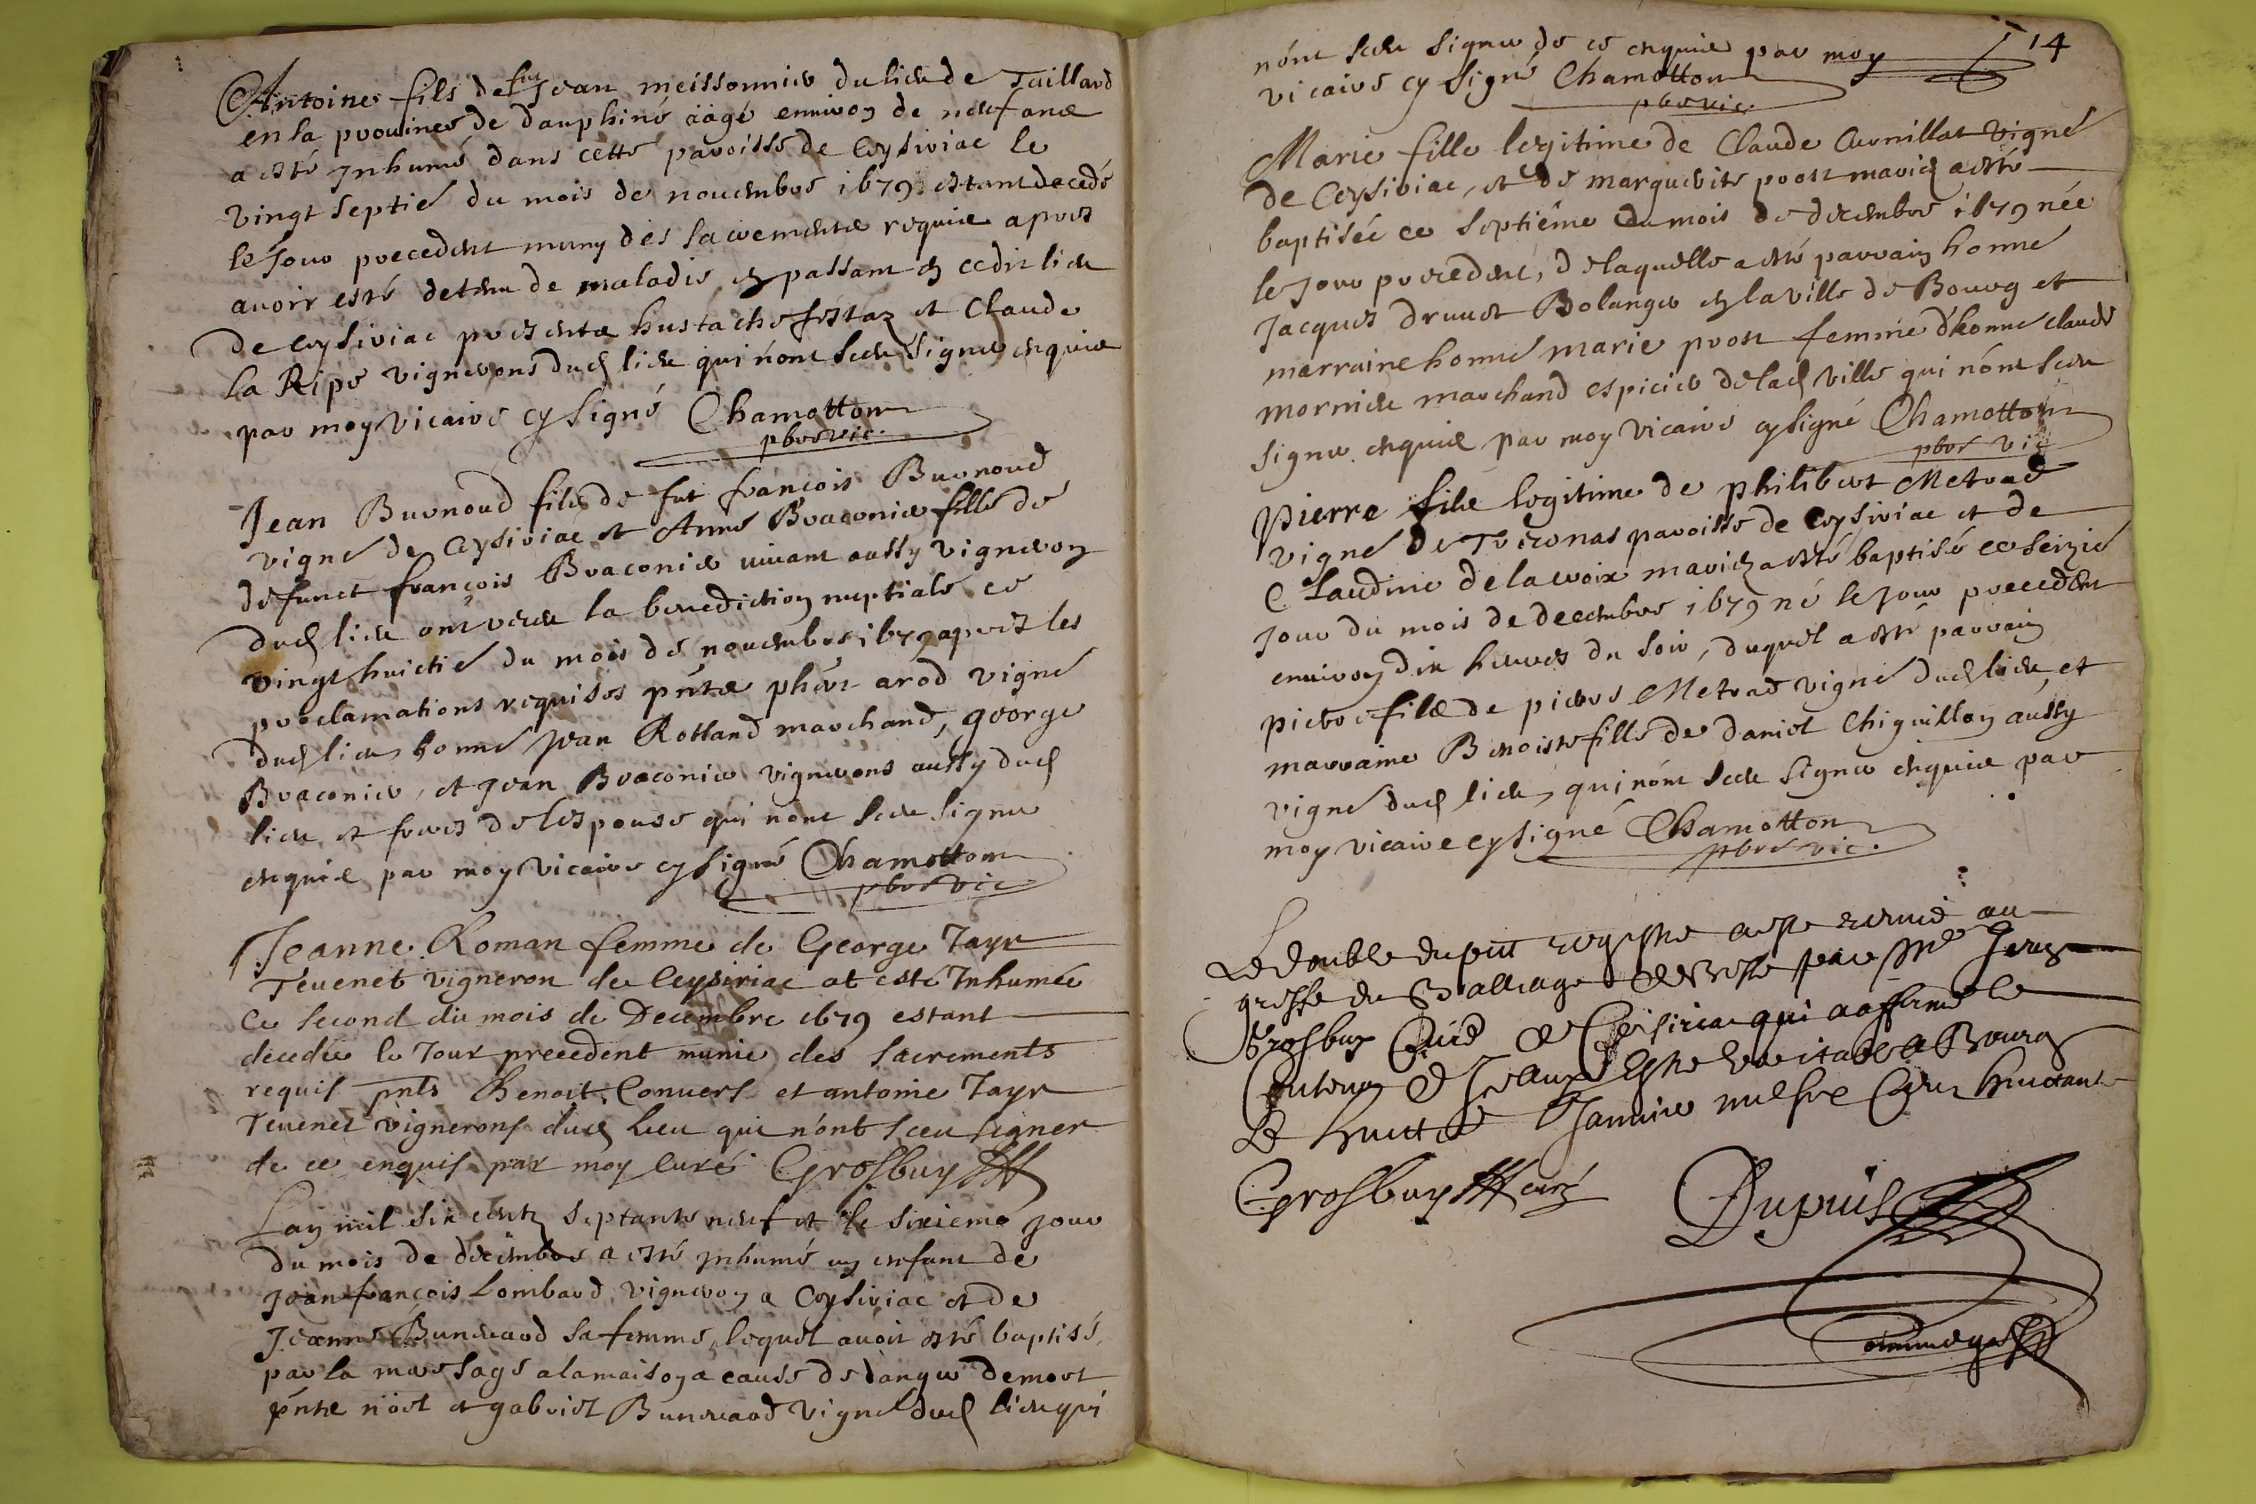 Antoine fils de fut Jean meissonnier du lieu de Taillard
en la province de dauphiné aagé environ de neuf ans
a esté Inhumé dans cette paroisse de Ceysiriac le
vingt septié du mois de novembre 1679 estant decedé
le Jour precedent muny des sacrements requis apres
avoir esté detenu de maladie en passant en cedit lieu
de Ceysiriac presents hustache festaz et Claude
la Ripe vignerons dud lieu qui n'ont sceu signer enquis
par moy vicaire cy signé Chamotton
pbre vic.
Jean Burnoud fils de fut françois Burnoud
vigné de Ceysiriac et Anne Braconier fille de
defunct françois Braconier vivant aussy vigneron
dud lieu ont receu la benediction nuptiale ce
vingt huictié du mois de novembre 1679 apres les
proclamations requises pnts phért arod vigné
dud lieu, honné Jean Rolland marchand, george
Braconier, et Jean Braconier vignerons aussy dud
lieu et freres de lespouse qui nont sceu signer
enquis par moy vicaire cy signé Chamotton
pbre vic
Jeanne Roman femme de George Tayr
Tevenet vigneron de Ceysiriac at esté Inhumée
Ce second du mois de Decembre 1679 estant
decedée le Jour precedent munie des sacrements
requis pnts Benoit Convers et antoine Tayr
Tevenet vignerons dud lieu qui n'ont sceu signer
de ce enquis par moy curé Grosbuy
Lan mil six centz septante neuf et le sixiemé jour
du mois de decembre a esté Inhumé un enfant de
Jean françois Lombard vigneron a Ceysiriac et de
Jeanne Buneraod sa femme, lequel avoit esté baptisé
par la mere sage a la maison a cause de danger de mort
pnts noel et gabriel Buneraod vigné dud lieu qui
14
n'ont sceu signer de ce enquis par moy
vicaire cy signé Chamotton
pbre vic.
Marie fille legitime de Claude Curnillat vigné
de Ceysiriac, et de marguerite prost mariez a esté
baptisée ce septiéme du mois de decembre 1679 née
le Jour precedent, de laquelle a esté parrain honné
Jacques druuet Bolanger en la ville de Bourg et
marraine honné marie prost femme d'honné claude
mornieu marchand espicier de lad ville qui n'ont sceu
signer enquis par moy vicaire cy signé Chamotton
pbre vic
Pierre fils legitime de philibert Metrad
vigné de Treconas paroisse de Ceysiriac et de
Claudine delacroix mariez a esté baptisé ce seizié
jour du mois de decembre 1679 né le Jour precedent
environ dix heures du soir, duquel a esté parrain
pierre fils de pierre Metrad vigné dud lieu, et
marraine Benoiste fille de daniel Chiquillon aussy
vigné dud lieu, qui n'ont sceu signer enquis par
moy vicaire cy signé Chamotton
pbre vic.
Le double du pnt registre a esté remis au
greffe du Balliage de Bresse par Mre Jean
Grosbuy Curé de Ceisiria qui a affirmé le
Contenu d Iceluy estre veritable a Bourg
Le huict de Janvier mil six Cent huictante
Grosbuy curé
Dupuis